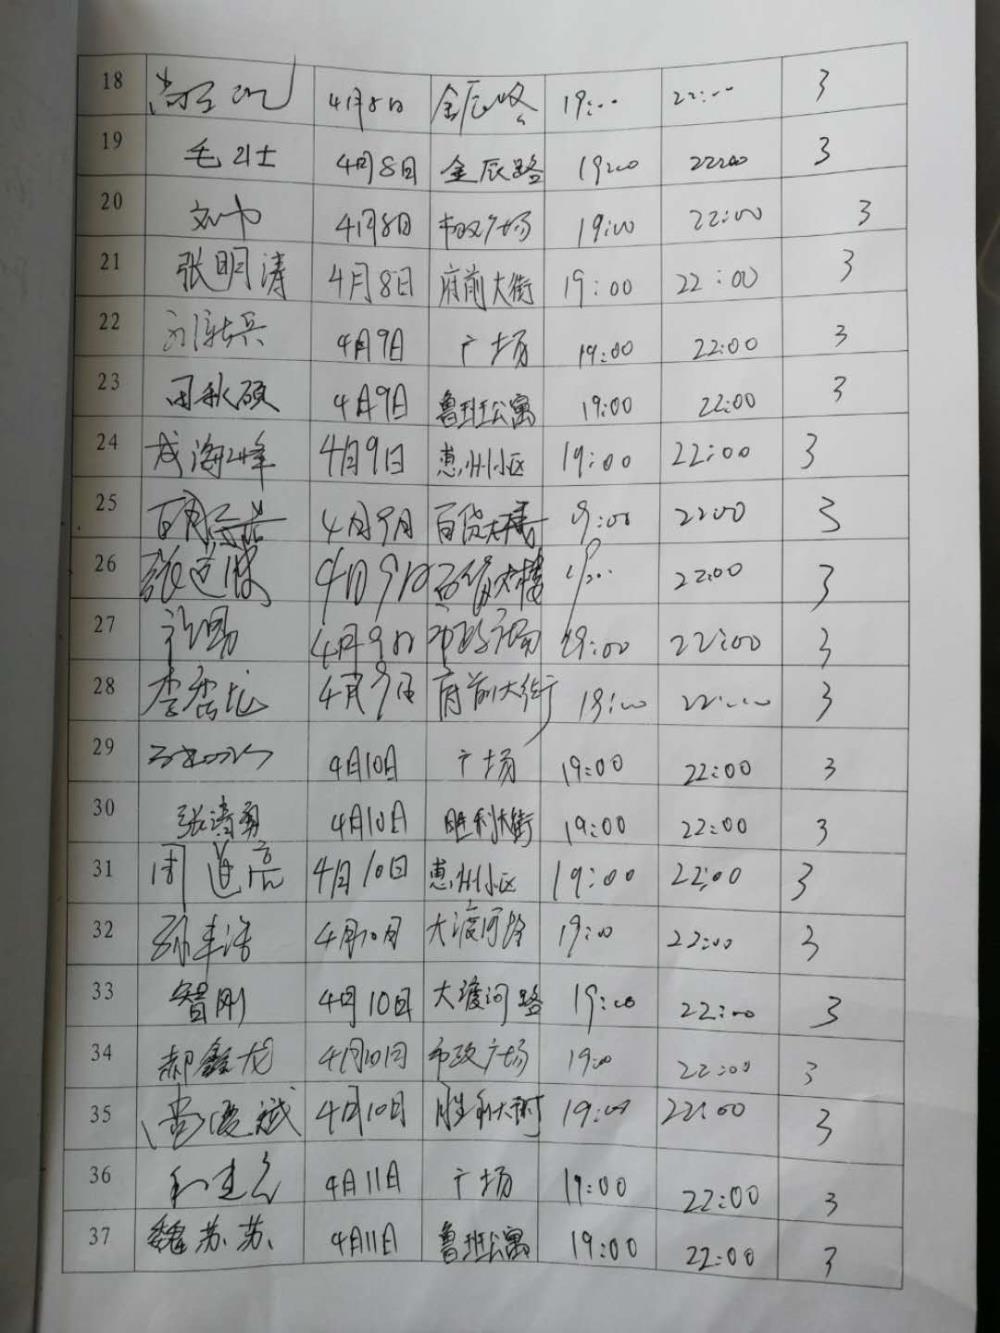 18 4月8日 金辰路 19:00 22:00 3
19 毛卫士 4月8日 金辰路 19:00 22:00 3
20 4月8日 市政广场 19:00 22:00 3
21 张明涛 4月8日 府前大街 19:00 22:00 3
22 4月9日 广场 19:00 22:00 3
23 田秋硕 4月9日 鲁班公寓 19:00 22:00 3
24 成海峰 4月9日 惠州小区 19:00 22:00 3
25 4月9日 百货大楼 19:00 22:00 3
26 4月9日 百货大楼 22:00 3
27 许勇 4月9日 市政广场 19:00 22:00 3
28 4月9日 府前大街 22:00 3
29 4月10日 广场 19:00 22:00 3
30 张涛勇 4月10日 胜利大街 19:00 22:00 3
31 周道亮 4月10日 惠州小区 19:00 22:00 3
32 4月10日 大渡河路 19:00 22:00 3
33 智刚 4月10日 大渡河路 19:00 22:00 3
34 郝鑫龙 4月10日 市政广场 19:00 22:00 3
35 4月10日 胜利大街 19:00 22:00 3
36 4月11日 广场 19:00 22:00 3
37 魏苏苏 4月11日 鲁班公寓 19:00 22:00 3